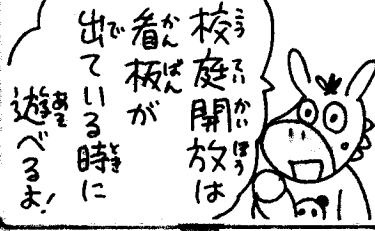 校庭開放は
看板が
出ている時に
遊べるよ!